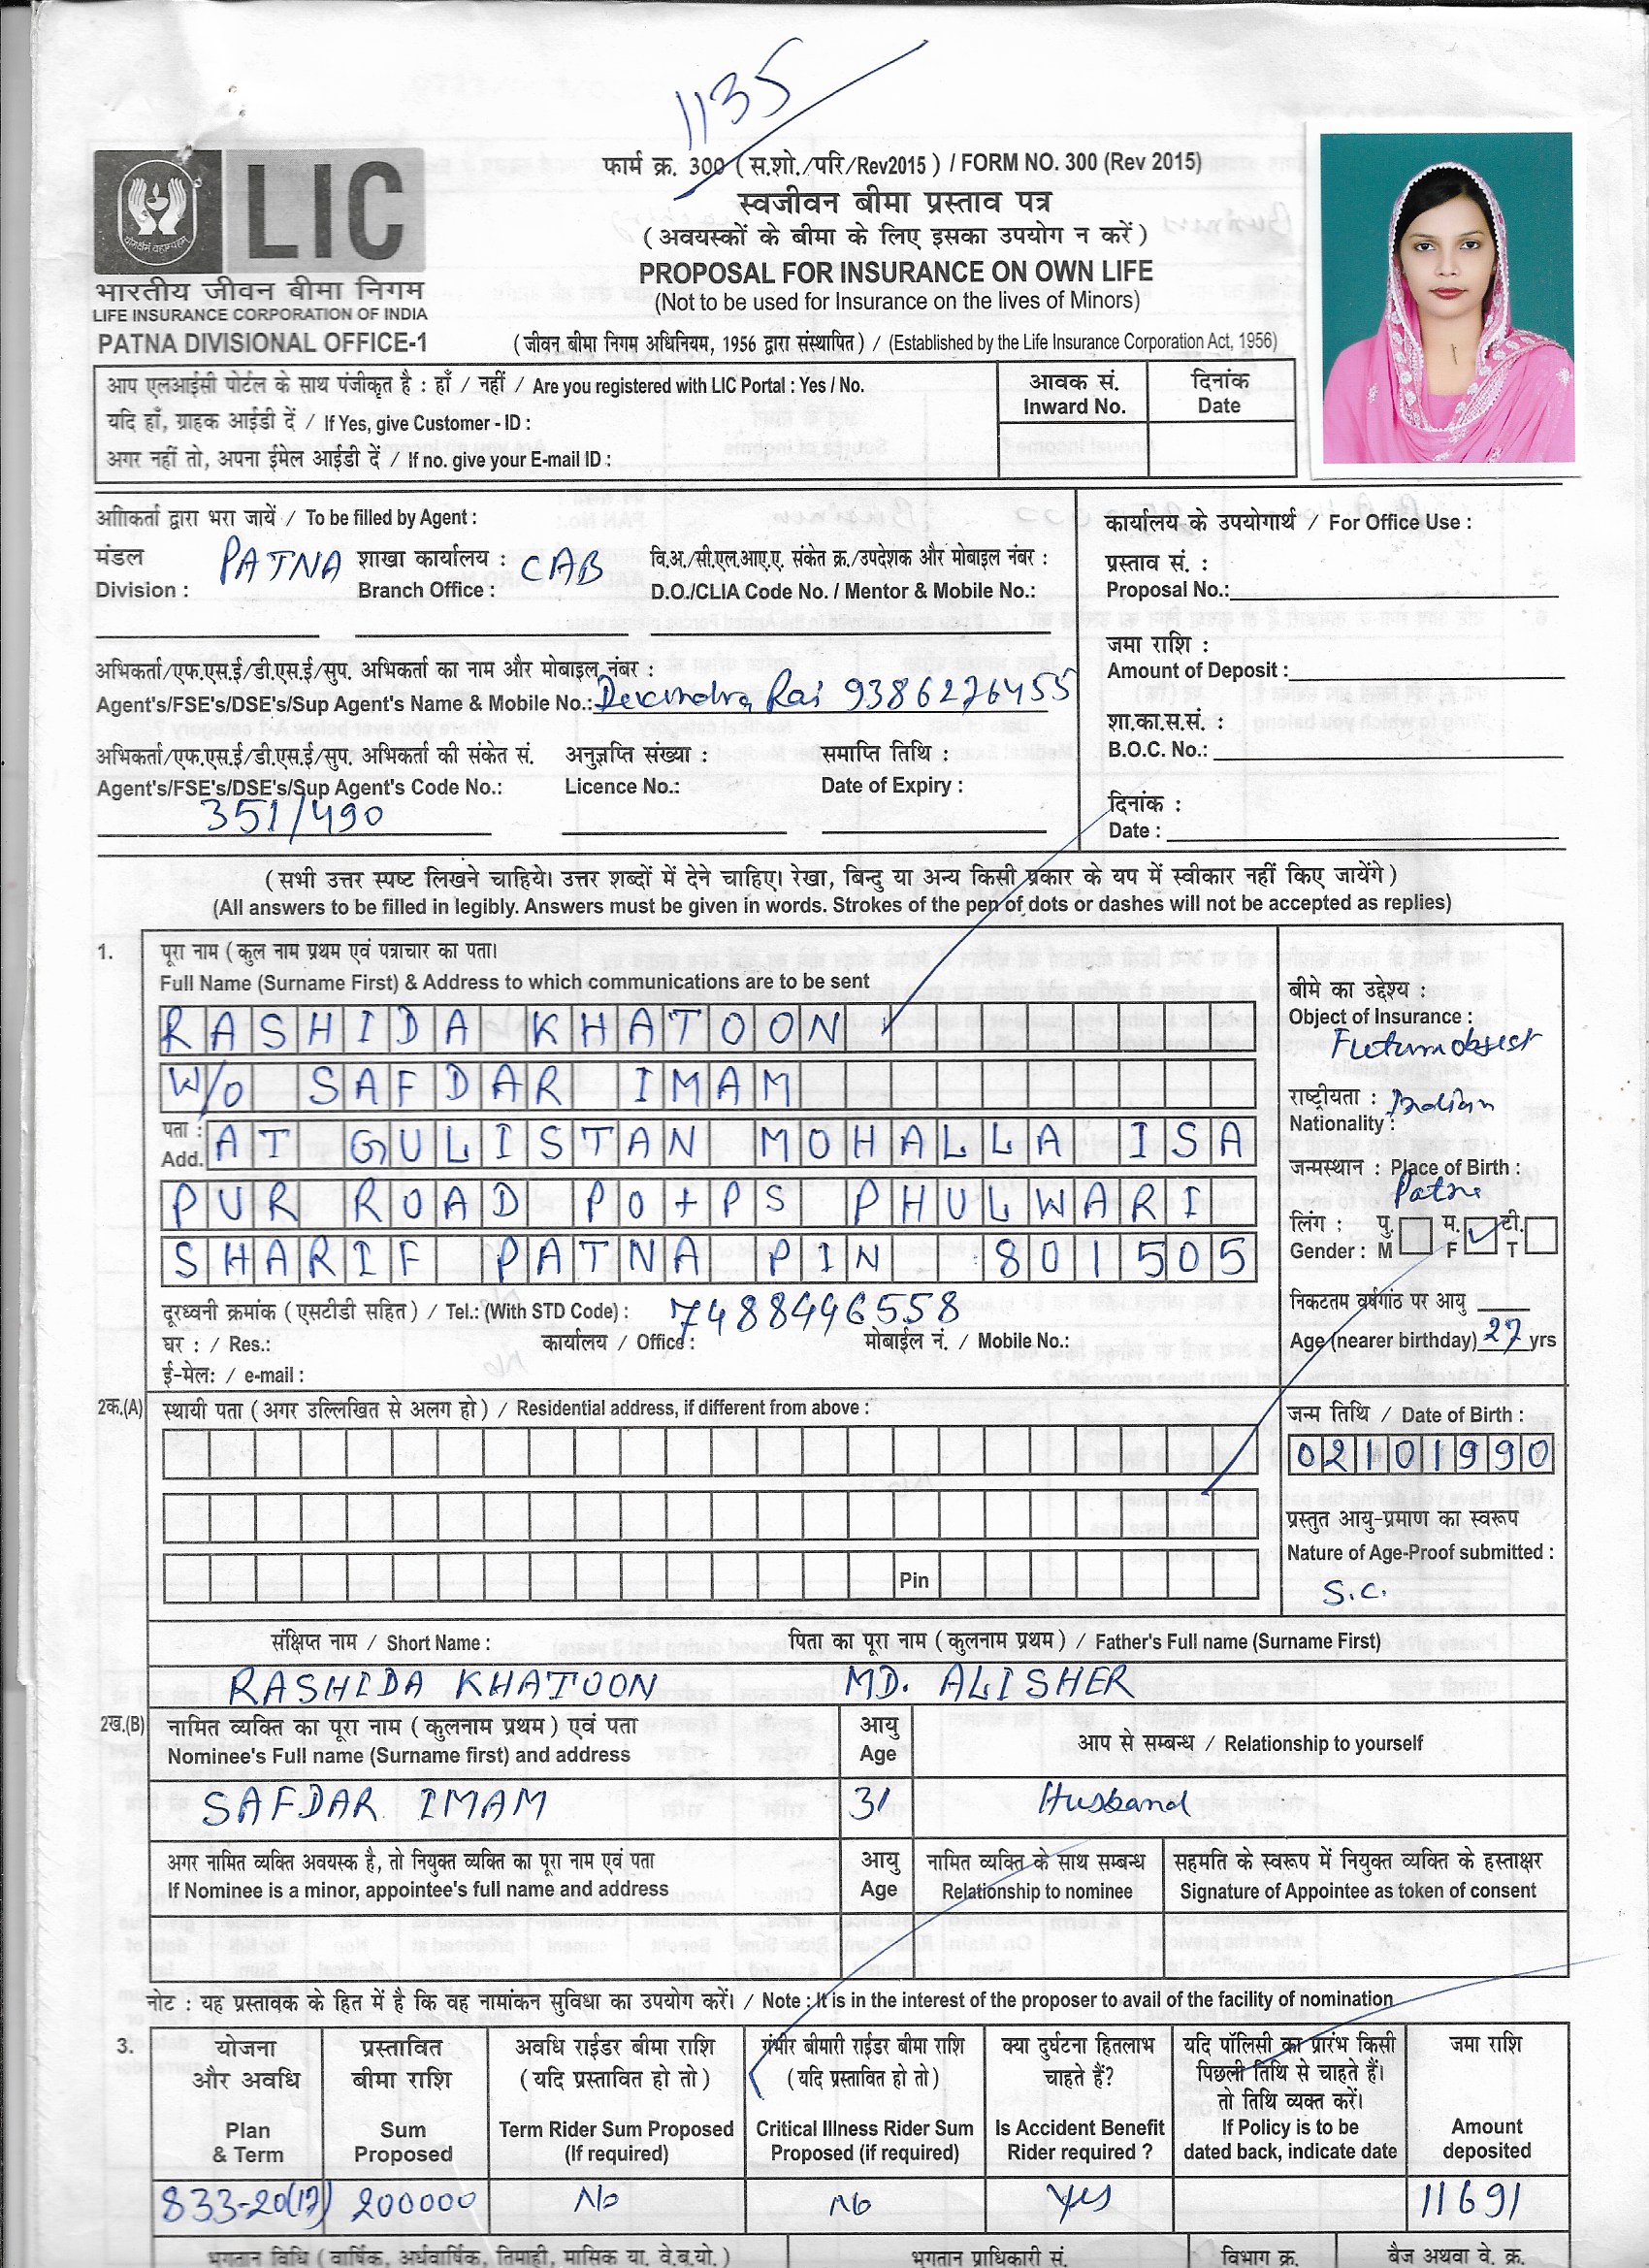 1135
फार्म क्र. 300 (स.शो./परि/Rev2015) / FORM NO. 300 (Rev 2015)
स्वजीवन बीमा प्रस्ताव पत्र
(अवयस्कों के बीमा के लिए इसका उपयोग न करें)
PROPOSAL FOR INSURANCE ON OWN LIFE
(Not to be used for Insurance on the lives of Minors)
(जीवन बीमा निगम अधिनियम, 1956 द्वारा संस्थापित) / (Established by the Life Insurance Corporation Act, 1956)
LIC
भारतीय जीवन बीमा निगम
LIFE INSURANCE CORPORATION OF INDIA
PATNA DIVISIONAL OFFICE-1
आप एलआईसी पोर्टल के साथ पंजीकृत है : हाँ / नहीं / Are you registered with LIC Portal : Yes / No.
यदि हाँ, ग्राहक आईडी दें / If Yes, give Customer - ID :
अगर नहीं तो, अपना ईमेल आईडी दें / If no. give your E-mail ID :
आवक सं. दिनांक
Inward No. Date
अाीिकर्ता द्वारा भरा जायें / To be filled by Agent :
मंडल शाखा कार्यालय : वि.अ./सी.एल.आए.ए. संकेत क्र./उपदेशक और मोबाइल नंबर :
Division : PATNA Branch Office : CAB D.O./CLIA Code No. / Mentor & Mobile No.:
अभिकर्ता/एफ.एस.ई/डी.एस.ई/सुप. अभिकर्ता का नाम और मोबाइल नंबर :
Agent's/FSE's/DSE's/Sup Agent's Name & Mobile No.: Devendra Rai 9386276455
अभिकर्ता/एफ.एस.ई/डी.एस.ई/सुप. अभिकर्ता की संकेत सं. अनुज्ञप्ति संख्या : समाप्ति तिथि :
Agent's/FSE's/DSE's/Sup Agent's Code No.: Licence No.: Date of Expiry :
351/490
कार्यालय के उपयोगार्थ / For Office Use :
प्रस्ताव सं. :
Proposal No.:
जमा राशि :
Amount of Deposit :
शा.का.स.सं. :
B.O.C. No.:
दिनांक :
Date :
(सभी उत्तर स्पष्ट लिखने चाहिये। उत्तर शब्दों में देने चाहिए। रेखा, बिन्दु या अन्य किसी प्रकार के यप में स्वीकार नहीं किए जायेंगे)
(All answers to be filled in legibly. Answers must be given in words. Strokes of the pen of dots or dashes will not be accepted as replies)
1. पूरा नाम (कुल नाम प्रथम एवं पत्राचार का पता।
Full Name (Surname First) & Address to which communications are to be sent
RASHIDA KHATOON
W/O SAFDAR IMAM
पता :
Add. AT GULISTAN MOHALLA ISA
PUR ROAD PO+PS PHULWARI
SHARIF PATNA PIN 801505
दूरध्वनी क्रमांक (एसटीडी सहित) / Tel.: (With STD Code) : 7488446558
घर : / Res.: कार्यालय / Office : मोबाईल नं. / Mobile No.:
ई-मेल: / e-mail :
बीमे का उद्देश्य :
Object of Insurance :
राष्ट्रीयता : Indian
Nationality :
जन्मस्थान : Place of Birth :
Patna
लिंग : पु. म. टी.
Gender : M F ✓ T
निकटतम वर्षगांठ पर आयु
Age (nearer birthday) 27 yrs
2क.(A) स्थायी पता (अगर उल्लिखित से अलग हो) / Residential address, if different from above :
Pin
जन्म तिथि / Date of Birth :
02101990
प्रस्तुत आयु-प्रमाण का स्वरूप
Nature of Age-Proof submitted :
S.C.
संक्षिप्त नाम / Short Name : पिता का पूरा नाम (कुलनाम प्रथम) / Father's Full name (Surname First)
RASHIDA KHATOON MD. ALISHER
2ख.(B) नामित व्यक्ति का पूरा नाम (कुलनाम प्रथम) एवं पता आयु आप से सम्बन्ध / Relationship to yourself
Nominee's Full name (Surname first) and address Age
SAFDAR IMAM 31 Husband
अगर नामित व्यक्ति अवयस्क है, तो नियुक्त व्यक्ति का पूरा नाम एवं पता आयु नामित व्यक्ति के साथ सम्बन्ध सहमति के स्वरूप में नियुक्त व्यक्ति के हस्ताक्षर
If Nominee is a minor, appointee's full name and address Age Relationship to nominee Signature of Appointee as token of consent
नोट : यह प्रस्तावक के हित में है कि वह नामांकन सुविधा का उपयोग करें। / Note : It is in the interest of the proposer to avail of the facility of nomination
3. योजना और अवधि
Plan & Term
प्रस्तावित बीमा राशि
Sum Proposed
अवधि राईडर बीमा राशि (यदि प्रस्तावित हो तो)
Term Rider Sum Proposed (If required)
गंभीर बीमारी राईडर बीमा राशि (यदि प्रस्तावित हो तो)
Critical Illness Rider Sum Proposed (if required)
क्या दुर्घटना हितलाभ चाहते हैं?
Is Accident Benefit Rider required ?
यदि पॉलिसी का प्रारंभ किसी पिछली तिथि से चाहते हैं। तो तिथि व्यक्त करें।
If Policy is to be dated back, indicate date
जमा राशि
Amount deposited
833-20(17) 200000 No No Yes 11691
भुगतान विधि (वार्षिक, अर्धवार्षिक, तिमाही, मासिक या. वे.ब.यो.) भुगतान प्राधिकारी सं. विभाग क्र. बैज अथवा वे. क्र.